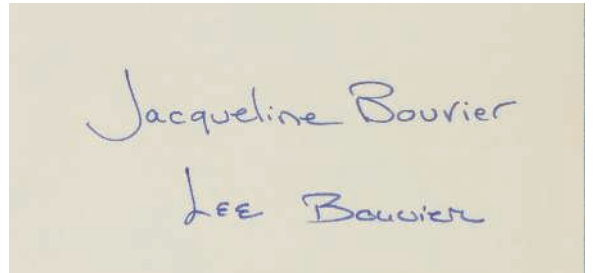 Jacqueline Bouvier
Lee Bouvier